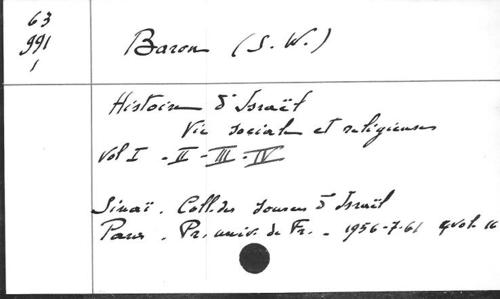 63
991
1
Baron (S. W.)
Histoire d'Israël
Vie sociale et religieuse
Vol I - II - III - IV
Sinaï. Coll. des sources d'Israël
Paris. Pr. univ. de Fr. - 1956-7-61 4 vol. 16